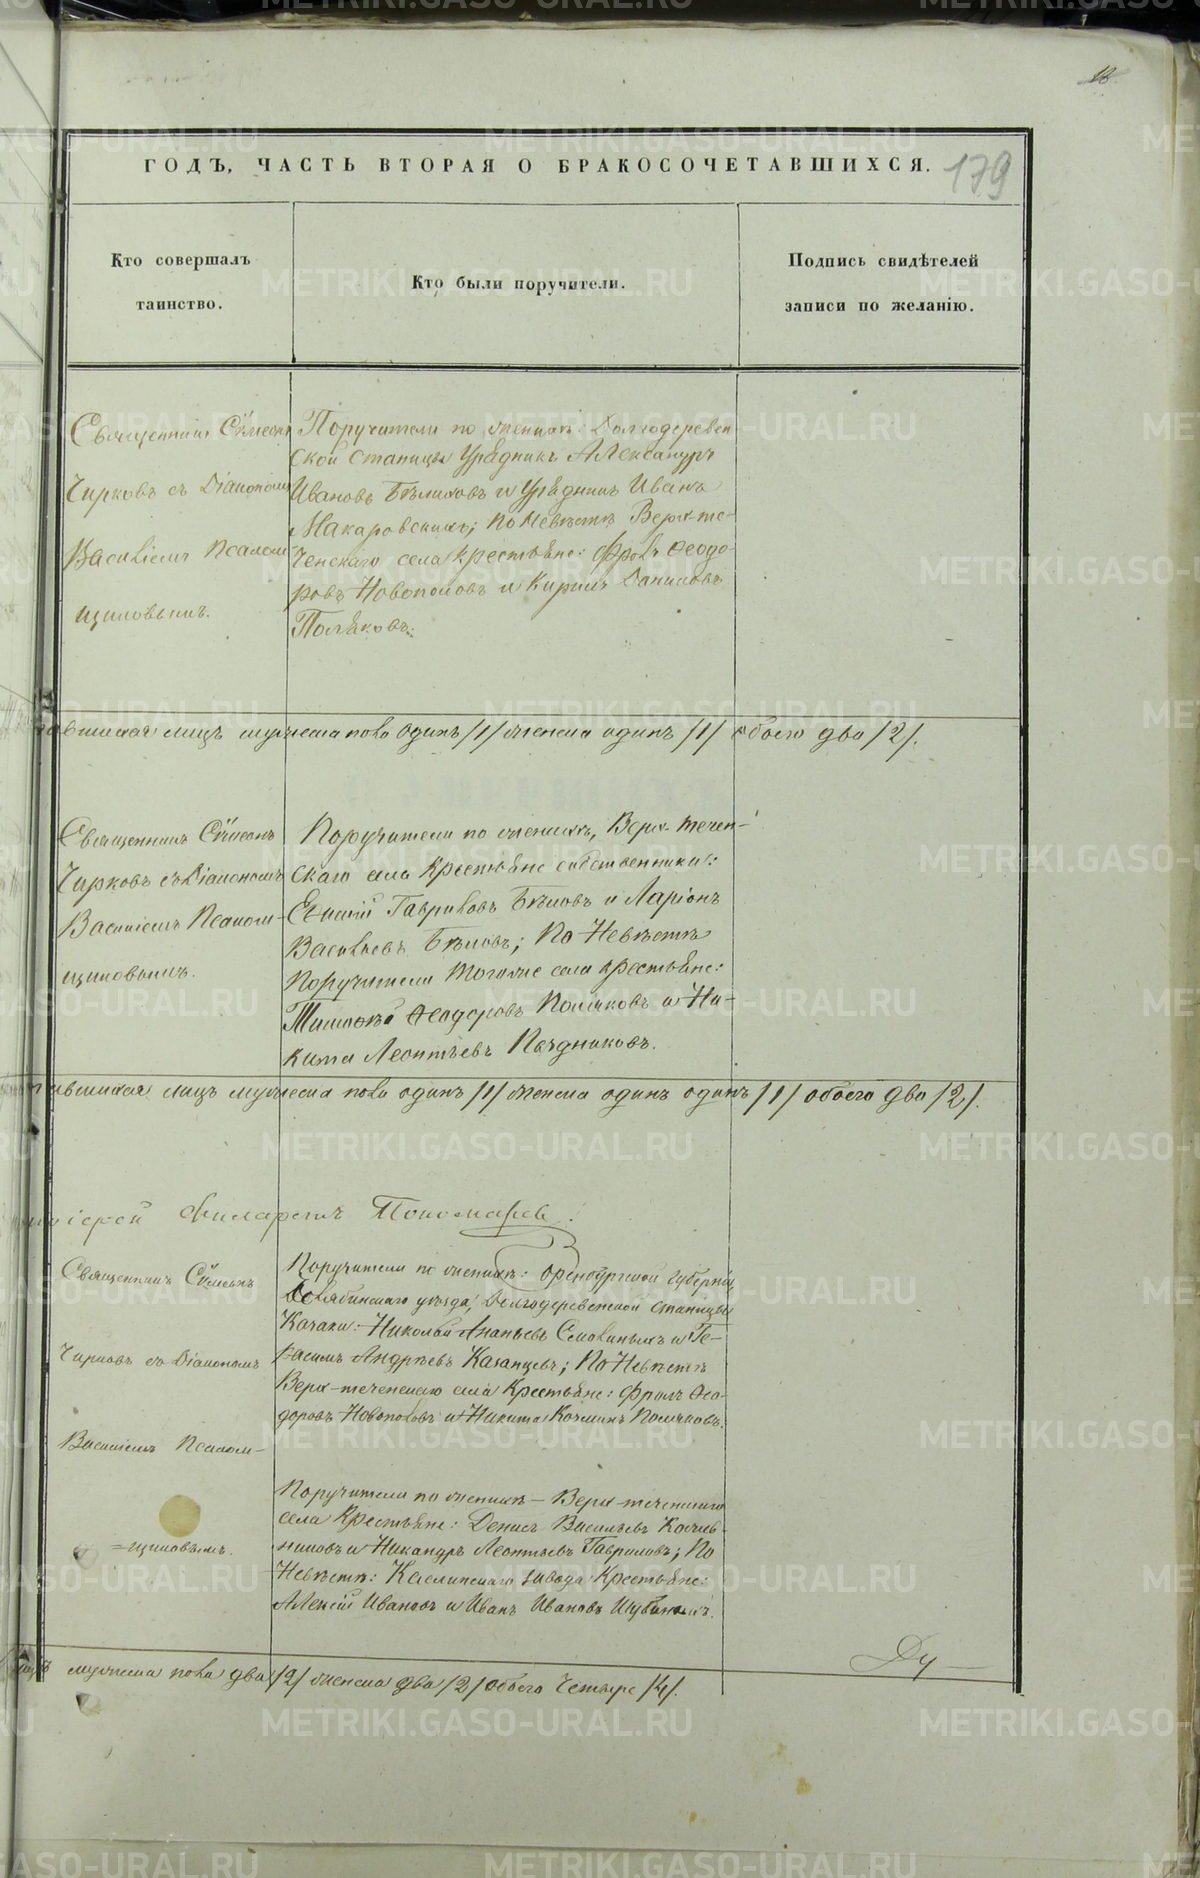 18.
ГОДЪ, ЧАСТЬ ВТОРАЯ О БРАКОСОЧЕТАВШИХСЯ.
179
Кто совершалъ
таинство.
Кто были поручители.
Подпись свидѣтелей
записи по желанію.
Священникъ Сѵмеонъ
Чирковъ съ Діакономъ
Василіемъ Псалом
щиковымъ.
Поручители по женихѣ: Долгодеревен
ской станицы Урядникъ Александръ
Ивановъ Бѣликовъ и Урядникъ Иванъ
Макаровскихъ; по Невѣстѣ Верхте-
ченскаго села крестьяне: Фролъ Ѳеодо-
ровъ Новопоповъ и Кирилъ Даниловъ
Поляковъ.
авшихся лицъ мужеска пола одинъ /1/ женска одинъ /1/ обоего два /2/.
Священникъ Сѵмеонъ
Чирковъ съ Діакономъ
Василіемъ Псалом-
щиковымъ.
Поручители по женихѣ, Верх-течен-
скаго села Крестьяне собственники:
Гавриловъ Бѣловъ и Ларіонъ
Васильевъ Бѣловъ; По Невѣстѣ
Поручители тогоже села крестьяне:
Тимофей Ѳеодоровъ Поляковъ и Ни-
кита Леонтьевъ
авшихся лицъ мужеска пола одинъ /1/ женска одинъ одинъ /1/ обоего два /2/.
іерей Филаретъ Пономаревъ
Священникъ Сѵмеонъ
Чирковъ съ Діакономъ
Василіемъ Псалом-
=щиковымъ.
Поручители по женихѣ: Оренбургской губерніи
Челябинскаго уѣзда, Долгодеревенской станицы
Казаки: Николай Ананьевъ и Ге-
расимъ Андреевъ Казанцевъ; По Невѣстѣ
Верх-теченскаго села Крестьяне: Фролъ Ѳео-
доровъ Новопоповъ и Никита Козминъ Поляковъ.
Поручители по женихѣ – Верх-теченскаго
села Крестьяне: Денисъ Васильевъ
и Никандръ Леонтьевъ Гавриловъ; По
Невѣстѣ: Каслинскаго завода Крестьяне:
Алексій Ивановъ и Иванъ Ивановъ
мужеска пола два /2/ женска два /2/ обоего четыре /4/.
Ду
METRIKI.GASO-URAL.RU